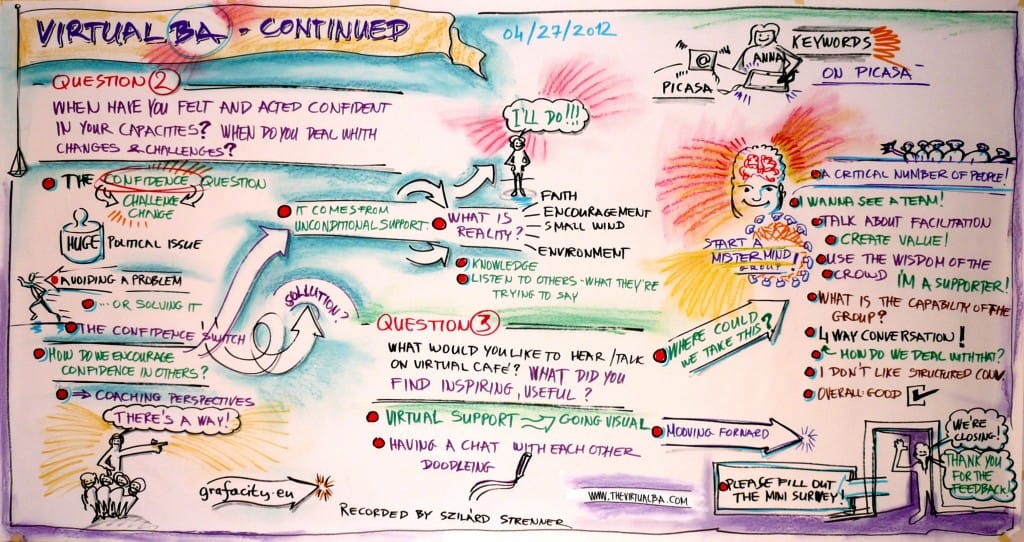 VIRTUAL BA - CONTINUED
04/27/2012
@
PICASA
ANNA
KEYWORDS
ON PICASA
QUESTION 2
WHEN HAVE YOU FELT AND ACTED CONFIDENT
IN YOUR CAPACITIES? WHEN DO YOU DEAL WHITH
CHANGES & CHALLENGES?
THE CONFIDENCE QUESTION
CHALLENGE
CHANGE
HUGE POLITICAL ISSUE
AVOIDING A PROBLEM
... OR SOLVING IT
THE CONFIDENCE SWITCH
HOW DO WE ENCOURAGE
CONFIDENCE IN OTHERS?
⇒ COACHING PERSPECTIVES
THERE'S A WAY!
grafacity.eu
SOLLUTION?
IT COMES FROM
UNCONDITIONAL SUPPORT
I'LL DO!!!
WHAT IS
REALITY?
FAITH
ENCOURAGEMENT
SMALL WIND
ENVIRONMENT
KNOWLEDGE
LISTEN TO OTHERS - WHAT THEY'RE
TRYING TO SAY
QUESTION 3
WHAT WOULD YOU LIKE TO HEAR / TALK
ON VIRTUAL CAFÉ? WHAT DID YOU
FIND INSPIRING, USEFUL?
VIRTUAL SUPPORT GOING VISUAL
HAVING A CHAT WITH EACH OTHER
DOODLEING
RECORDED BY SZILÁRD STRENNER
WHERE COULD
WE TAKE THIS?
MOOVING FORWARD
WWW.THEVIRTUALBA.COM
START A
MISTERMIND
GROUP!
A CRITICAL NUMBER OF PEOPLE!
I WANNA SEE A TEAM!
TALK ABOUT FACILITATION
CREATE VALUE!
USE THE WISDOM OF THE
CROWD
I'M A SUPPORTER!
WHAT IS THE CAPABILITY OF THE
GROUP?
4 WAY CONVERSATION!
HOW DO WE DEAL WITH THAT?
I DON'T LIKE STRUCTURED CONV.
OVERALL: GOOD
PLEASE FILL OUT
THE MINI SURVEY!
WE'RE
CLOSING!
THANK YOU
FOR THE
FEEDBACK